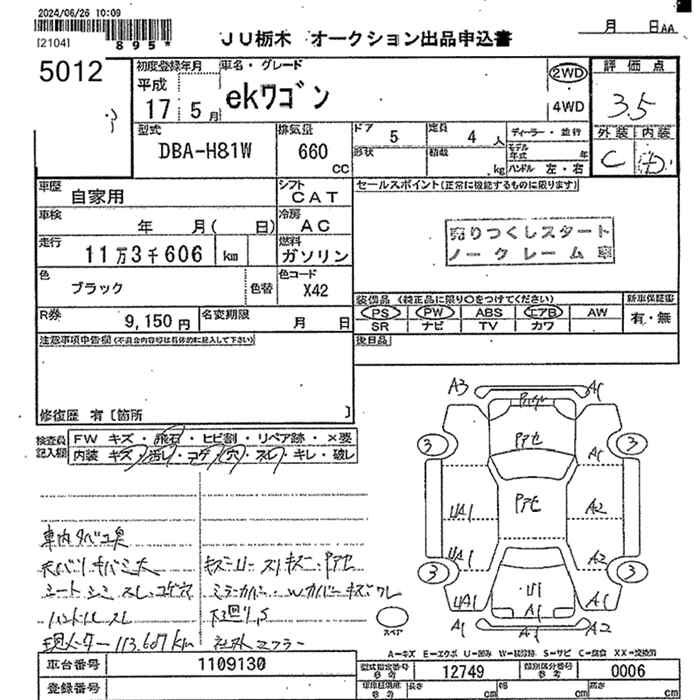 2024/06/26 10:09
[2104]
895*
JU栃木 オークション出品申込書
月 日 AA
5012
初度登録年月
車名・グレード
平成
17 5 月
ekワゴン
2WD
4WD
評価点
3.5
外装 内装
C
型式
DBA-H81W
排気量
660 CC
ドア 5
定員 4 人
形状
積載 kg
ディーラー・並行
モデル年式 年
ハンドル 左・右
車歴 自家用
シフト CAT
セールスポイント(正常に機能するものに限ります)
車検 年 月( 日)
冷房 AC
売りつくしスタート
ノークレーム車
走行 11万3千606 km
燃料 ガソリン
色 ブラック 色替
色コード X42
装備品 (純正品に限り○をつけてください)
新車保証書
PS PW ABS エアB AW
有・無
SR ナビ TV カワ
R券 9,150円
名変期限 月 日
後日品
注意事項申告欄(不具合内容等は具体的に記入して下さい)
修復歴 有〔箇所 〕
検査員記入欄
FW キズ・飛石・ヒビ割・リペア跡・×要
内装 キズ・汚レ・コゲ・穴・スレ・キレ・破レ
車内タバコ臭
ハンドルスレ
現メーター 113.607km
キズ
社外マフラー
A3 A1
3 3
Pアセ
A1
Pアセ
UA1 A2
UA1 A2
3 3
U1
UA1 A1 A1
A1 A2
スペア
A-キズ E-エクボ U-凹み W-補修跡 S-サビ C-腐食 XX-交換済
車台番号 1109130
型式指定番号 参考 12749
類別区分番号 参考 0006
登録番号
長さ cm
幅 cm
高さ cm